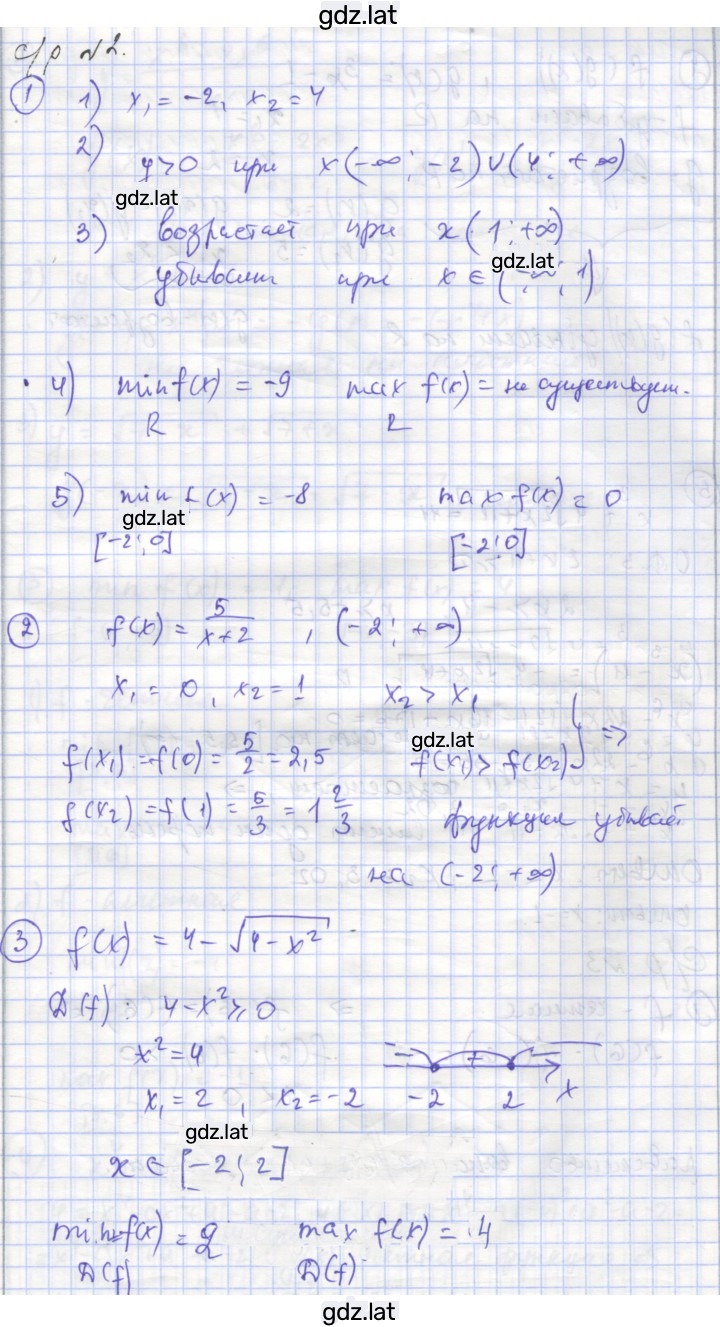 gdz.lat
с/р №2.
① 1) x₁ = -2, x₂ = 4
2) y>0 при x(-∞; -2)∪(4; +∞)
gdz.lat
3) возрастает при x(1; +∞)
gdz.lat
убывает при x ∈ (-∞; 1)
4) min f(x) = -9 max f(x) = не существует.
R R
5) min f(x) = -8 max f(x) = 0
gdz.lat
[-2; 0] [-2; 0]
② f(x) = 5/(x+2) , (-2; +∞)
x₁ = 0, x₂ = 1 x₂ > x₁
gdz.lat
f(x₁) = f(0) = 5/2 = 2,5 f(x₁) > f(x₂) } =>
f(x₂) = f(1) = 5/3 = 1 2/3 функция убывает
на (-2; +∞)
③ f(x) = 4 - √(4-x²)
D(f): 4-x² ≥ 0
x² = 4 - + -
x₁ = 2, x₂ = -2 -2 2 x
gdz.lat
x ∈ [-2; 2]
min f(x) = 2 max f(x) = 4
D(f) D(f)
gdz.lat